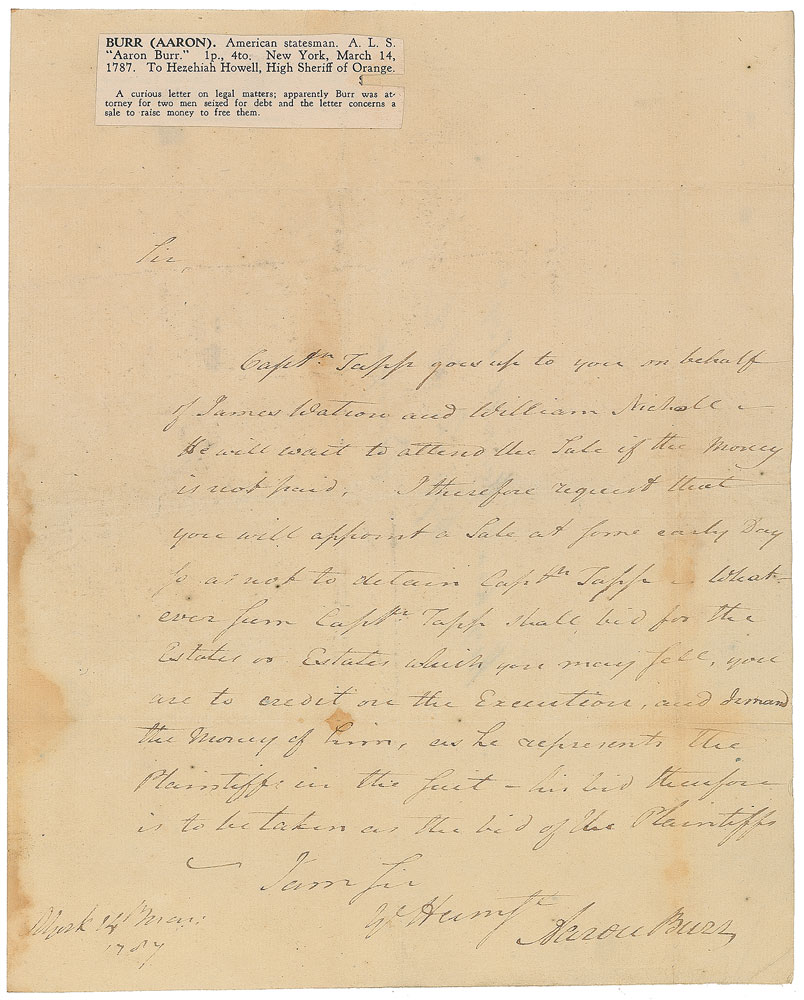 BURR (AARON). American statesman. A. L. S.
"Aaron Burr." 1p., 4to. New York, March 14,
1787. To Hezehiah Howell, High Sheriff of Orange.
A curious letter on legal matters; apparently Burr was at-
torney for two men seized for debt and the letter concerns a
sale to raise money to free them.
Sir,
Captn Tapp goes up to you on behalf
of James Watson and William Nicholl -
He will wait to attend the Sale if the Money
is not paid. I therefore request that
you will appoint a Sale at some early Day
so as not to detain Captn Tapp - What-
ever sum Captn Tapp shall bid for the
Estate or Estates which you may sell, you
are to credit on the Execution, and demand
the Money of him, as he represents the
Plaintiffs in the suit - his bid therefore
is to be taken as the bid of the Plaintiffs
I am Sir
Yr Humle
Aaron Burr
NYork 14 Mar:
1787